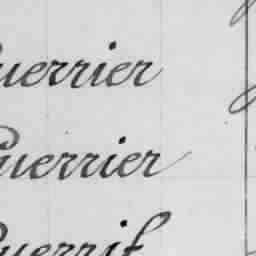 Guerrier
Guerrier
Guerrif